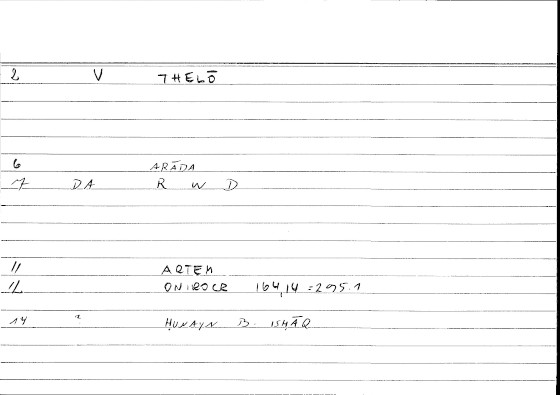 2 V THELŌ
6 ARĀDA
7 DA R W D
11 ARTEM
12 ONIROCR 164,14 = 295.1
14 ḤUNAYN B. ISḤĀQ